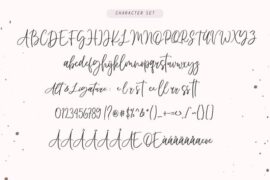 CHARACTER SET
ABCDEFGHIJKLMNOPQRSTUVWXYZ
abcdefghijklmnopqrstuvwxyz
Alt & Ligature : e l r s t ee ll rr ss tt
0123456789 !?@#$%^&*()_+-=<>[]{}